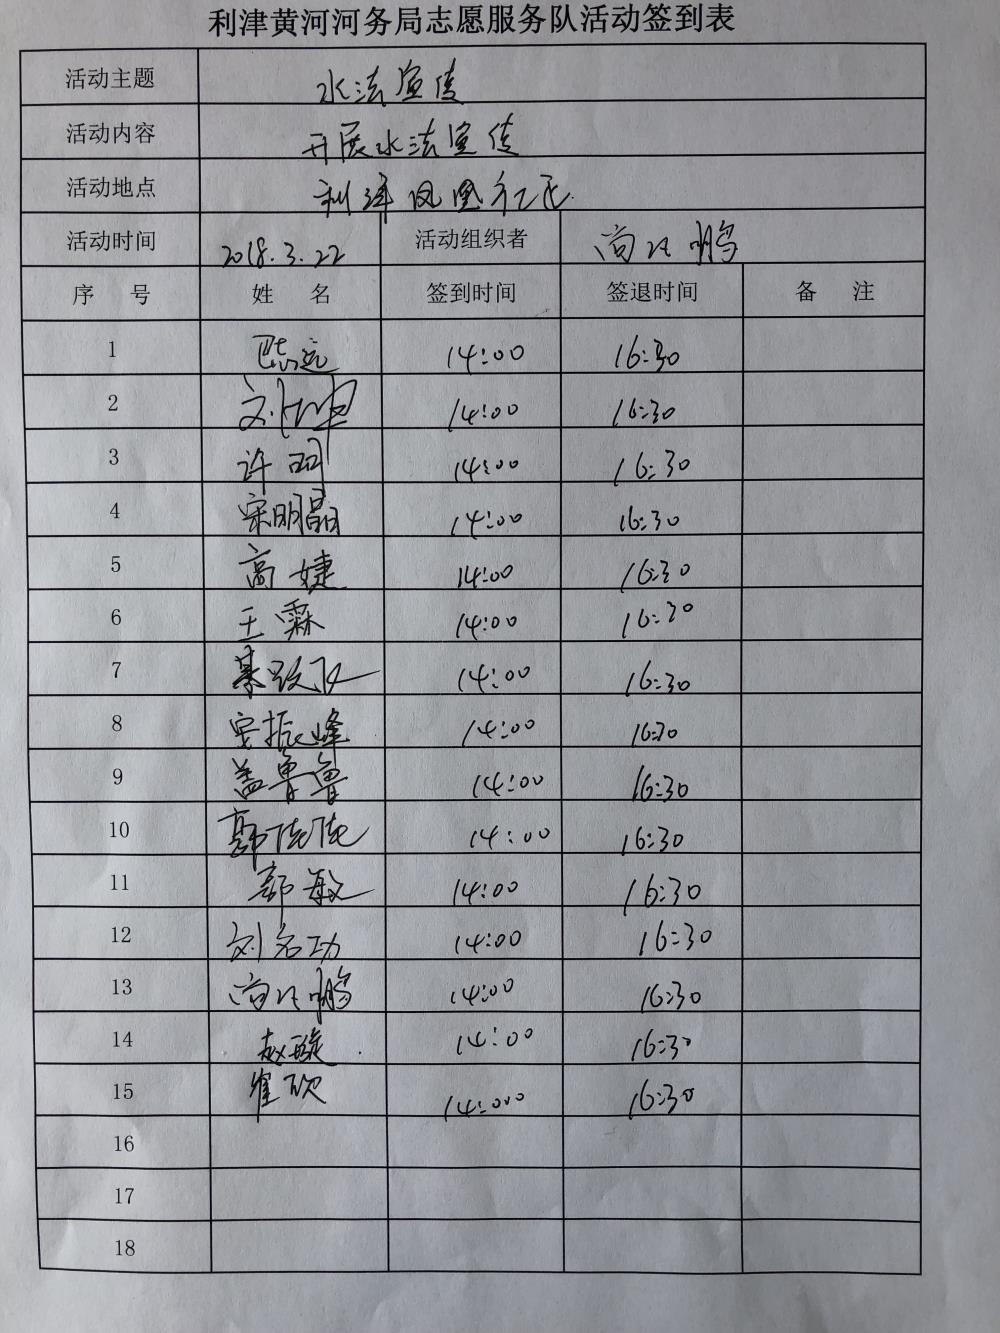 利津黄河河务局志愿服务队活动签到表
活动主题 水法宣传
活动内容 开展水法宣传
活动地点 利津凤凰社区
活动时间 2018.3.22 活动组织者 尚
序 号 姓 名 签到时间 签退时间 备 注
1 14:00 16:30
2 刘 14:00 16:30
3 许 14:00 16:30
4 宋明晶 14:00 16:30
5 高婕 14:00 16:30
6 王霖 14:00 16:30
7 14:00 16:30
8 安振峰 14:00 16:30
9 盖鲁鲁 14:00 16:30
10 14:00 16:30
11 郭敏 14:00 16:30
12 刘名功 14:00 16:30
13 尚 14:00 16:30
14 赵璇 14:00 16:30
15 崔欣 14:00 16:30
16
17
18